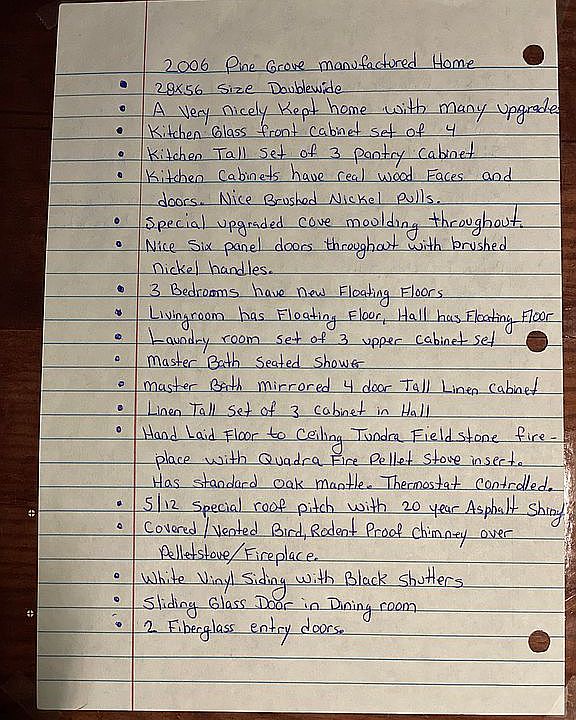 2006 Pine Grove manufactured Home
• 28x56 Size Doublewide
• A very nicely Kept home with many upgrades
• Kitchen Glass front Cabinet set of 4
• Kitchen Tall Set of 3 pantry Cabinet
• Kitchen Cabinets have real wood Faces and
doors. Nice Brushed Nickel Pulls.
• Special upgraded cove moulding throughout.
• Nice Six panel doors throughout with brushed
nickel handles.
• 3 Bedrooms have new Floating Floors
• Livingroom has Floating Floor, Hall has Floating Floor
• Laundry room set of 3 upper Cabinet set
• Master Bath Seated Shower
• master Bath mirrored 4 door Tall Linen Cabinet
• Linen Tall Set of 3 Cabinet in Hall
• Hand Laid Floor to Ceiling Tundra Field stone fire-
place with Quadra Fire Pellet Stove insert.
Has standard oak mantle. Thermostat controlled.
• 5/12 Special roof pitch with 20 year Asphalt
• Covered/Vented Bird, Rodent Proof Chimney over
Pelletstove/Fireplace.
• White Vinyl Siding with Black Shutters
• Sliding Glass Door in Dining room
• 2 Fiberglass entry doors.